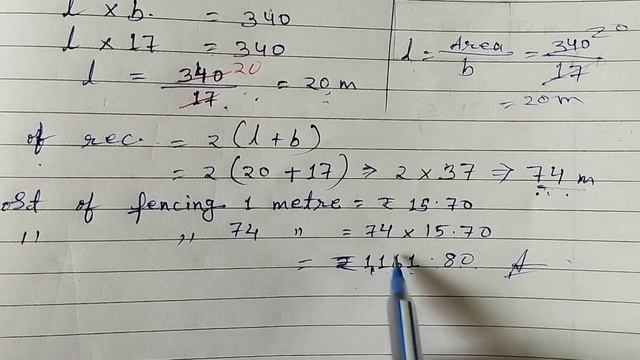 l × b. = 340
l × 17 = 340
l = 340 20 / 17 = 20 m
l = Area / b = 340 20 / 17
= 20 m
of rec. = 2 (l + b)
= 2 (20 + 17) ⇒ 2 × 37 ⇒ 74 m
ost of fencing 1 metre = ₹ 15.70
,, ,, 74 ,, = 74 × 15.70
= ₹ 1,161.80 A